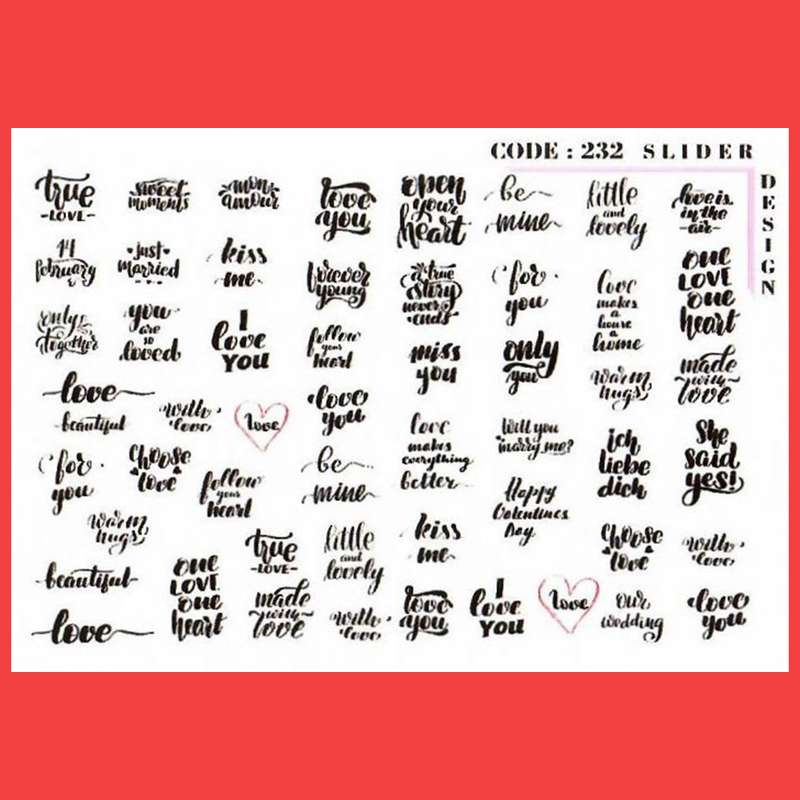 CODE : 232 SLIDER
DESIGN
true
-LOVE-
sweet
moments
mon
amour
love
you
open
your
heart
be
mine
little
and
lovely
love is
in the
-air-
14
february
just
married
kiss
me
forever
young
a true
story
never
ends
for
you
love
makes
a
house
a
home
one
LOVE
one
heart
only
together
you
are
so
loved
I
love
YOU
follow
your
heart
miss
you
only
you
warm
hugs
made
with
love
love
beautiful
with
love
love
love
you
love
makes
everything
better
will you
marry me?
ich
liebe
dich
She
said
yes!
for
you
choose
love
follow
your
heart
be
mine
Happy
Valentines
Day
warm
hugs
true
-LOVE-
little
and
lovely
kiss
me
choose
love
with
love
beautiful
one
LOVE
one
heart
made
with
love
love
with
love
love
you
I
love
YOU
love
our
wedding
love
you